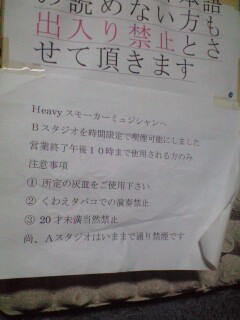 本語
お読めない方も
出入り禁止とさ
せて頂きます
Heavyスモーカーミュジシャンへ
Bスタジオを時間限定で喫煙可能にしました
営業終了午後10時まで使用される方のみ
注意事項
① 所定の灰皿をご使用下さい
② くわえタバコでの演奏禁止
③ 20才未満当然禁止
尚、Aスタジオはいままで通り禁煙です